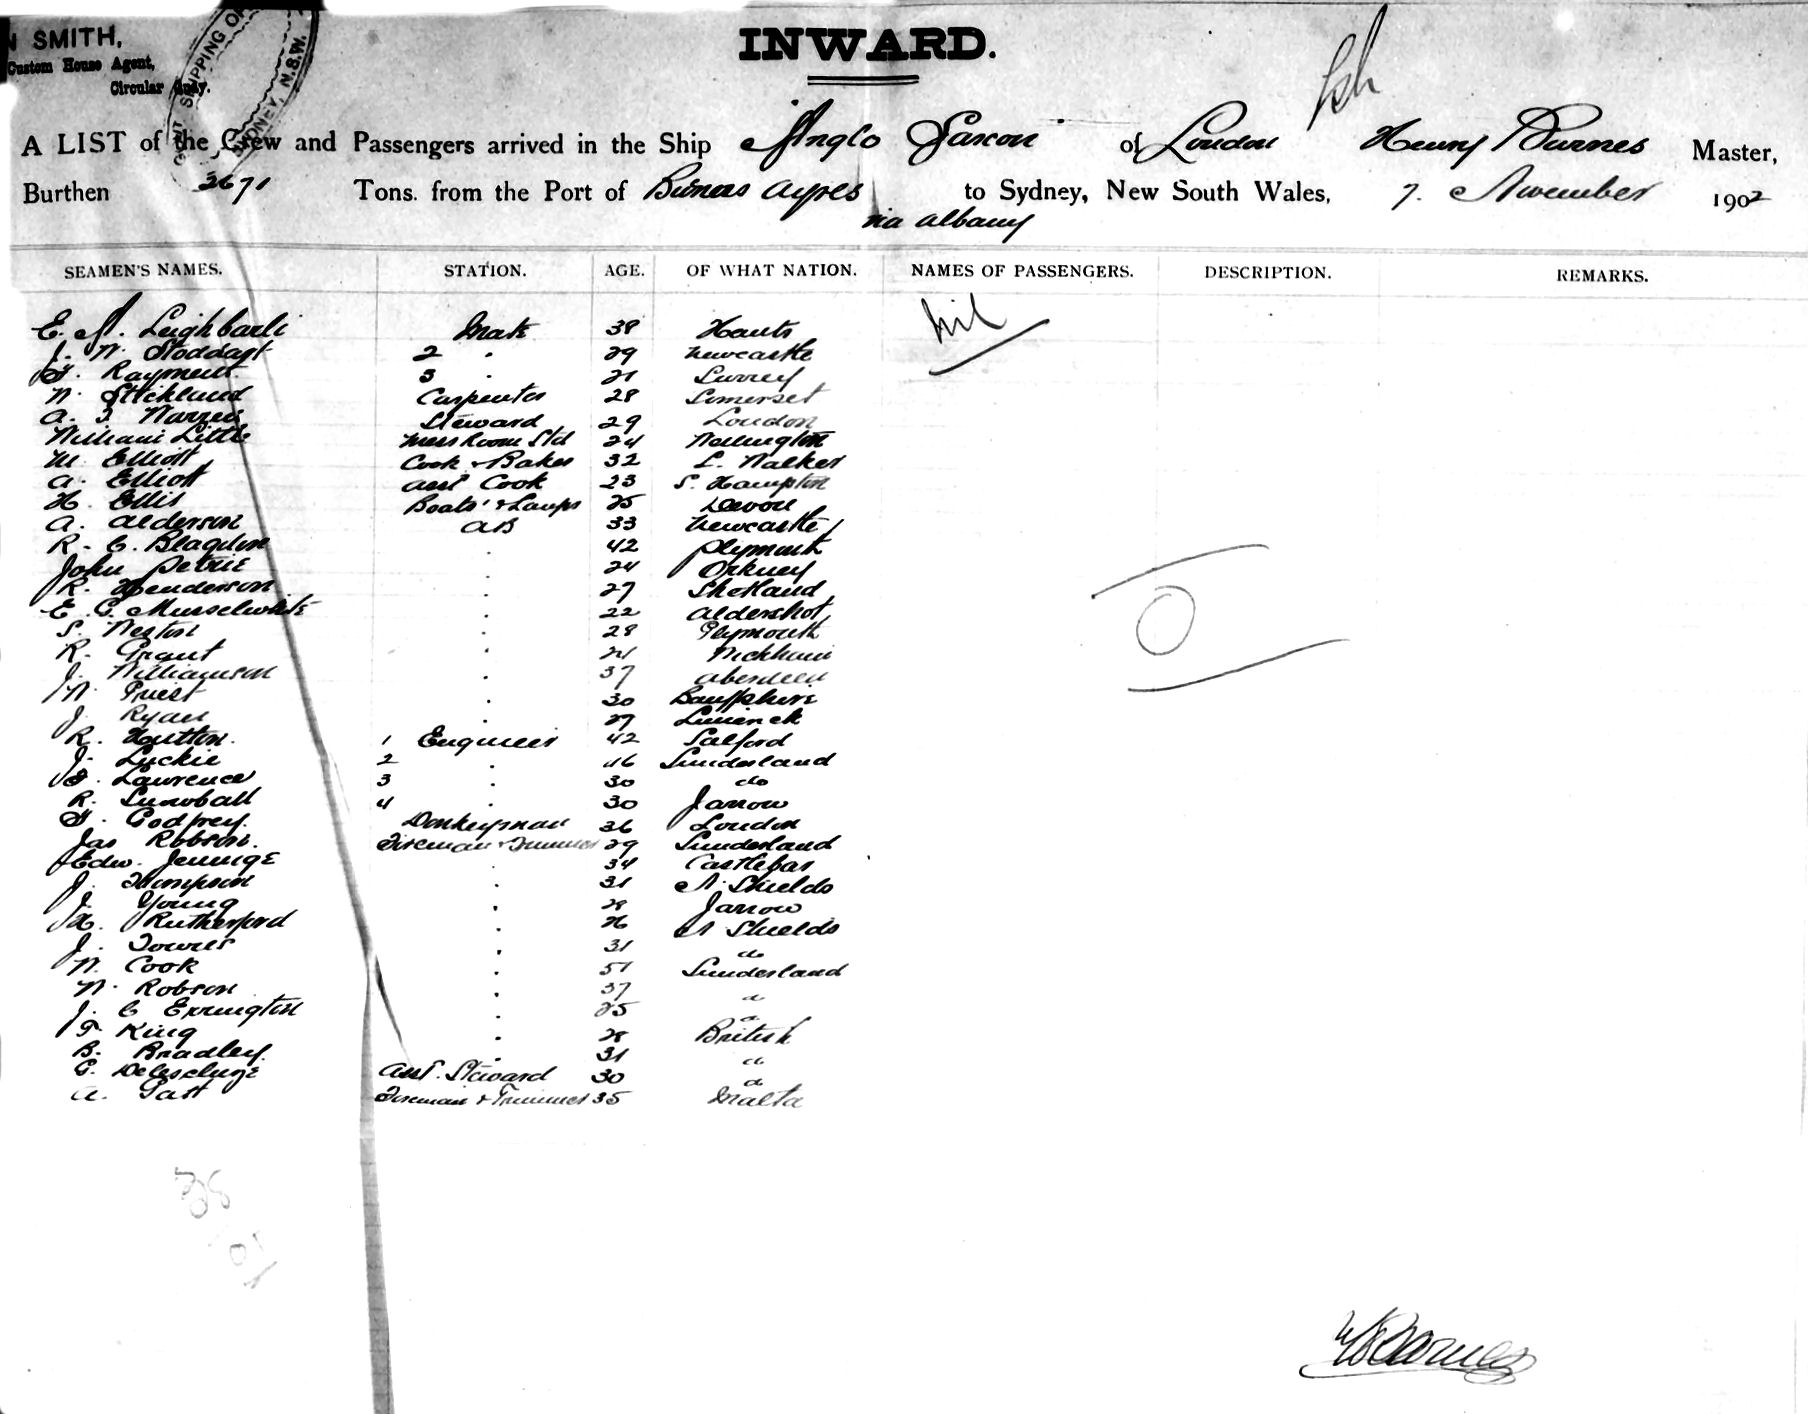 SMITH,
Custom House Agent,
Circular Quay.
SHIPPING OF
SYDNEY, N.S.W.
INWARD.
A LIST of the Crew and Passengers arrived in the Ship Anglo Saxon of London Henry Barnes Master,
Burthen 2671 Tons. from the Port of Buenos Ayres to Sydney, New South Wales, 7. November 1902
via Albany
SEAMEN'S NAMES. STATION. AGE. OF WHAT NATION. NAMES OF PASSENGERS. DESCRIPTION. REMARKS.
E. A. Mate 38 Hants nil
J. W. Stoddart 2 " 29 Newcastle
Rayment 3 " 21 Surrey
W. Stickland Carpenter 28 Somerset
A. J. Steward 29 London
William Little Mess Room Std 24 Wellington
M. Elliott Cook & Baker 32 L. Walker
A. Elliott Asst Cook 23 S. Hampton
H. Ellis Boats' & Lamps 25 Devon
A. Alderson AB 33 Newcastle
R. C. Blagdon " 42 Plymouth
John Petrie " 24 Orkney
R. Henderson " 27 Shetland
E. G. Musselwhite " 22 Aldershot
S. Weston " 28 Plymouth
R. Grant " 21
J. Williamson " 37 Aberdeen
W. Priest " 30 Banffshire
J. Ryan " 27 Limerick
R. Hutton. 1 Engineer 42 Salford
J. Luckie 2 " 46 Sunderland
Lawrence 3 " 30 do
R. Snowball 4 " 30 Jarrow
G. Godfrey. Donkeyman 36 London
Jas Robson. Fireman & Trimmer 29 Sunderland
Edw. " 34 Castlebar
J. Thompson " 31 N. Shields
J. Young " 28 Jarrow
H. Rutherford " 26 N Shields
J. Towns " 31 do
W. Cook " 51 Sunderland
W. Robson " 37 "
J. C Errington " 25 "
F. King " 28 British
B. Bradley. " 31 do
Asst. Steward 30 "
A. Fireman & Trimmer 35 Malta
38